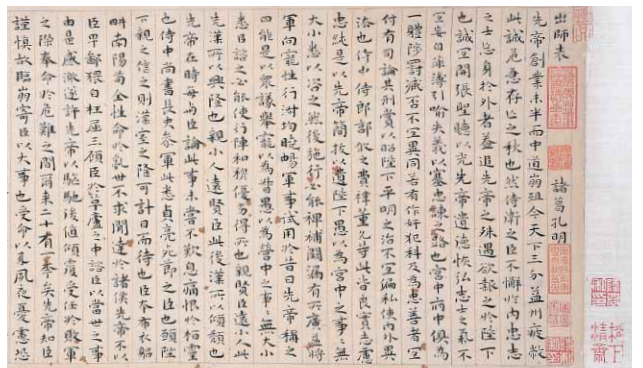 出師表 諸葛孔明
先帝創業未半而中道崩殂今天下三分益州疲敝
此誠危急存亡之秋也然侍衛之臣不懈於内忠志
之士忘身於外者蓋追先帝之殊遇欲報之於陛下
也誠宜開張聖聽以光先帝遺德恢弘志士之氣不
宜妄自菲薄引喻失義以塞忠諫之路也宮中府中俱為
一體陟罰臧否不宜異同若有作奸犯科及為忠善者宜
付有司論其刑賞以昭陛下平明之治不宜偏私使内外異
法也侍中侍郎郭攸之費禕董允等此皆良實志慮
忠純是以先帝簡拔以遺陛下愚以為宮中之事事無
大小悉以咨之然後施行必能裨補闕漏有所廣益將
軍向寵性行淑均曉暢軍事試用於昔日先帝稱之
曰能是以衆議舉寵以為督愚以為營中之事事無大小
悉以諮之必能使行陣和穆優劣得所也親賢臣遠小人此
先漢所以興隆也親小人遠賢臣此後漢所以傾頹也
先帝在時每與臣論此事未嘗不歎息痛恨於桓靈
也侍中尚書長史參軍此悉貞亮死節之臣也願陛
下親之信之則漢室之隆可計日而待也臣本布衣躬
耕南陽苟全性命於亂世不求聞達於諸侯先帝不以
臣卑鄙猥自枉屈三顧臣於草廬之中諮臣以當世之事
由是感激遂許先帝以驅馳後值傾覆受任於敗軍
之際奉命於危難之間爾來二十有一年矣先帝知臣
謹慎故臨崩寄臣以大事也受命以來夙夜憂慮恐